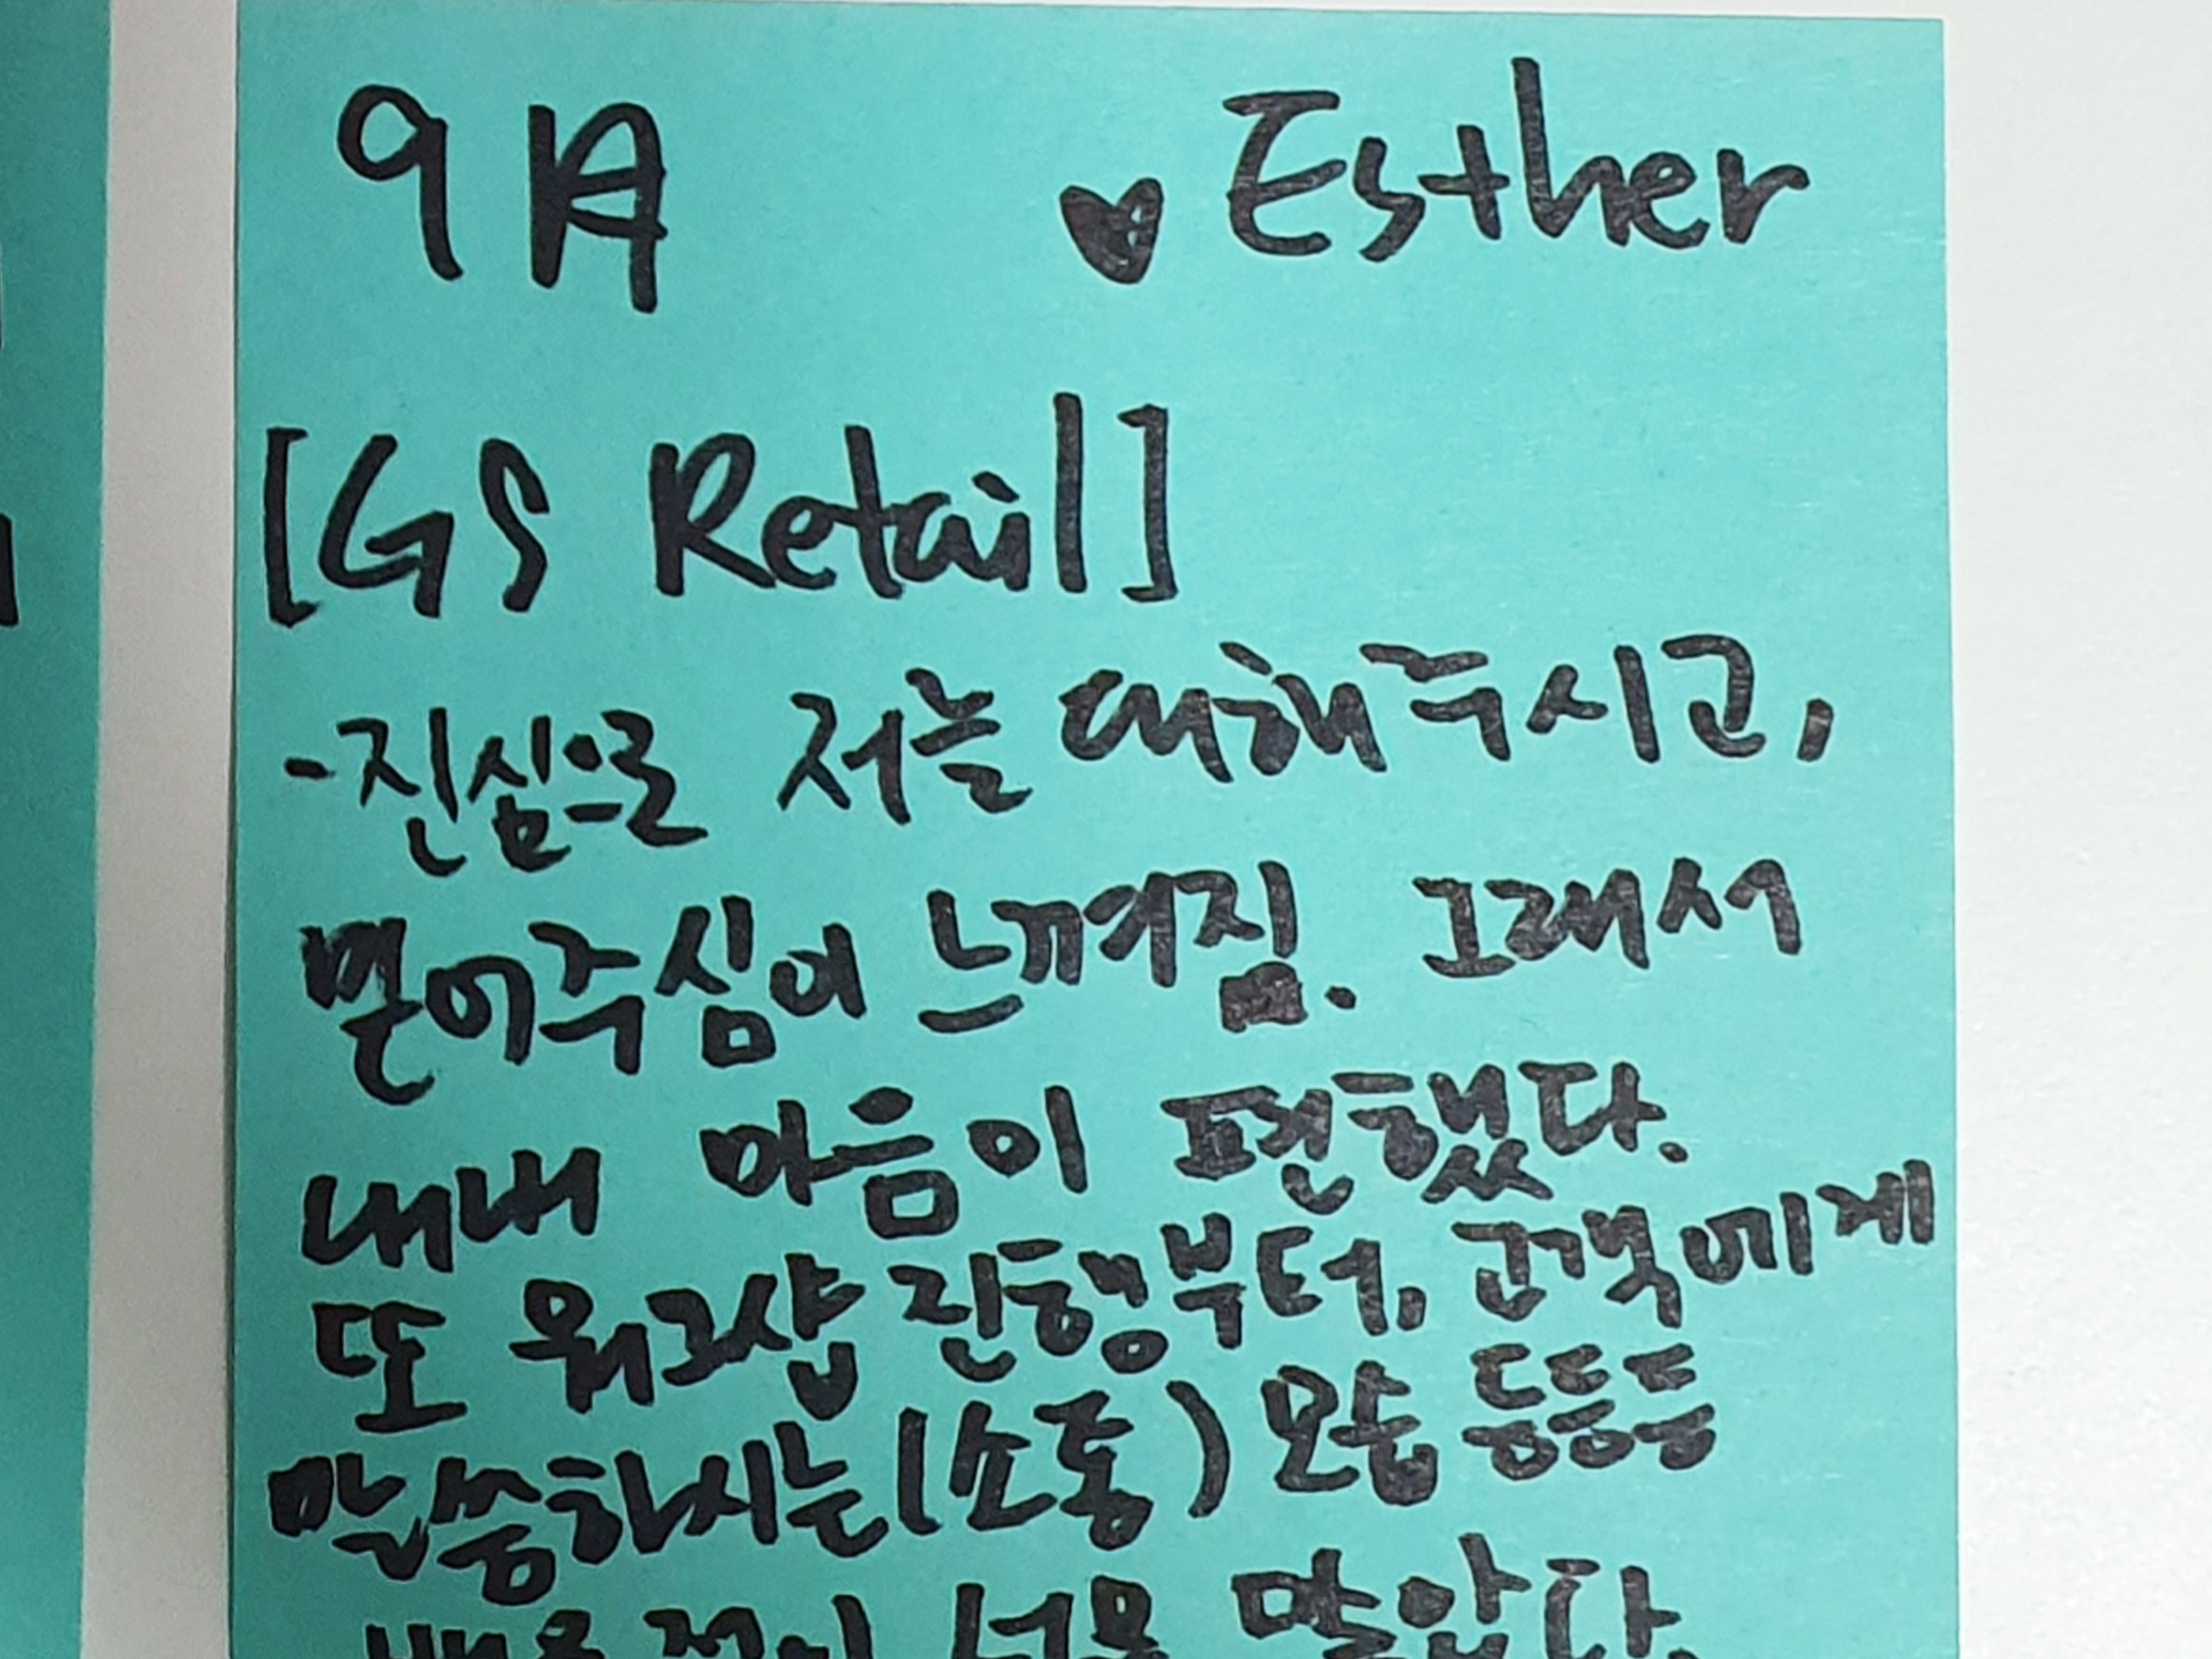 9月 ♥ Esther
[GS Retail]
- 진심으로 저를 대해주시고,
믿어주심이 느껴짐. 그래서
내내 마음이 편했다.
또 워크샵 진행부터, 고객에게
말씀하시는(소통) 모습 등등등
배울 점이 너무 많았다.